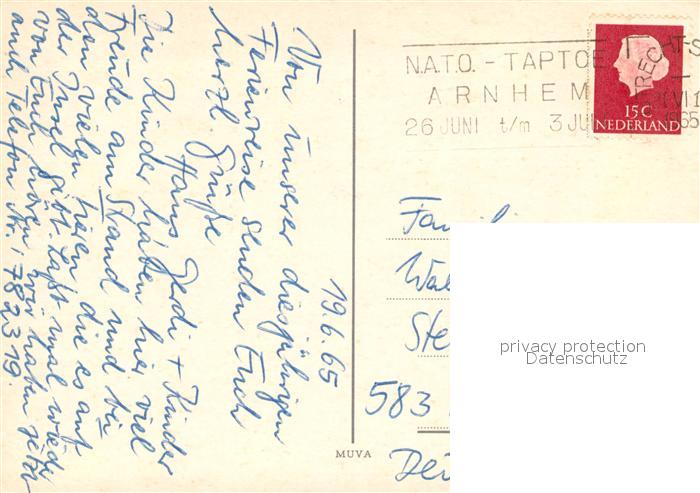 19.6.65
Von unserer diesjährigen
Ferienreise senden Euch
herzl. Grüße
Hans Gerdi + Kinder
Die Kinder haben hier viel
Freude am Strand und bei
den vielen Tieren die es auf
der Insel gibt. Laßt mal wieder
von Euch hören, wir haben jetzt
auch Telefon Nr. 782319.
N.A.T.O. - TAPTOE
ARNHEM
26 JUNI t/m 3 JU
UTRECHT-S
VI
1965
15 C
NEDERLAND
Famili
Wa
Ste
583
De
MUVA
privacy protection
Datenschutz